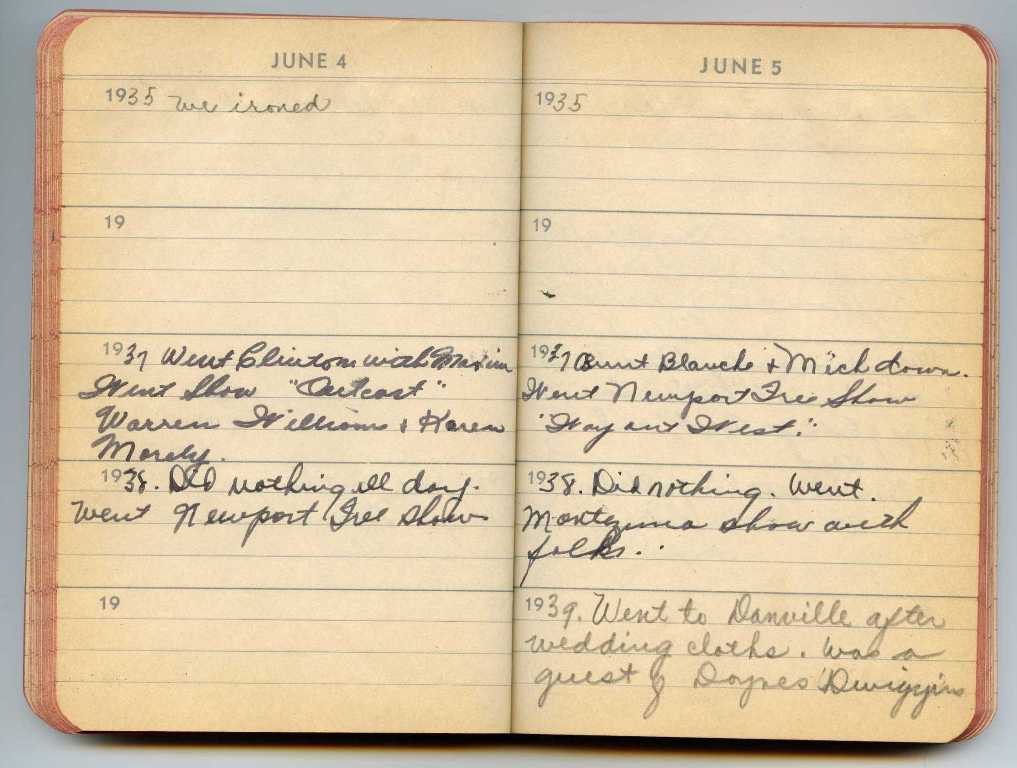 JUNE 4
1935 we ironed
19
1937 Went Clinton with
Went Show "Outcast"
Warren Williams & Karen
Morely.
1938. Did nothing all day.
Went Newport Free Show
19
JUNE 5
1935
19
1937 Blanche & Mich down.
Went Newport Free Show
"Way out West."
1938. Did nothing. Went.
Montezuma show with
folks.
1939. Went to Danville after
wedding cloths. Was a
guest of Dwiggins